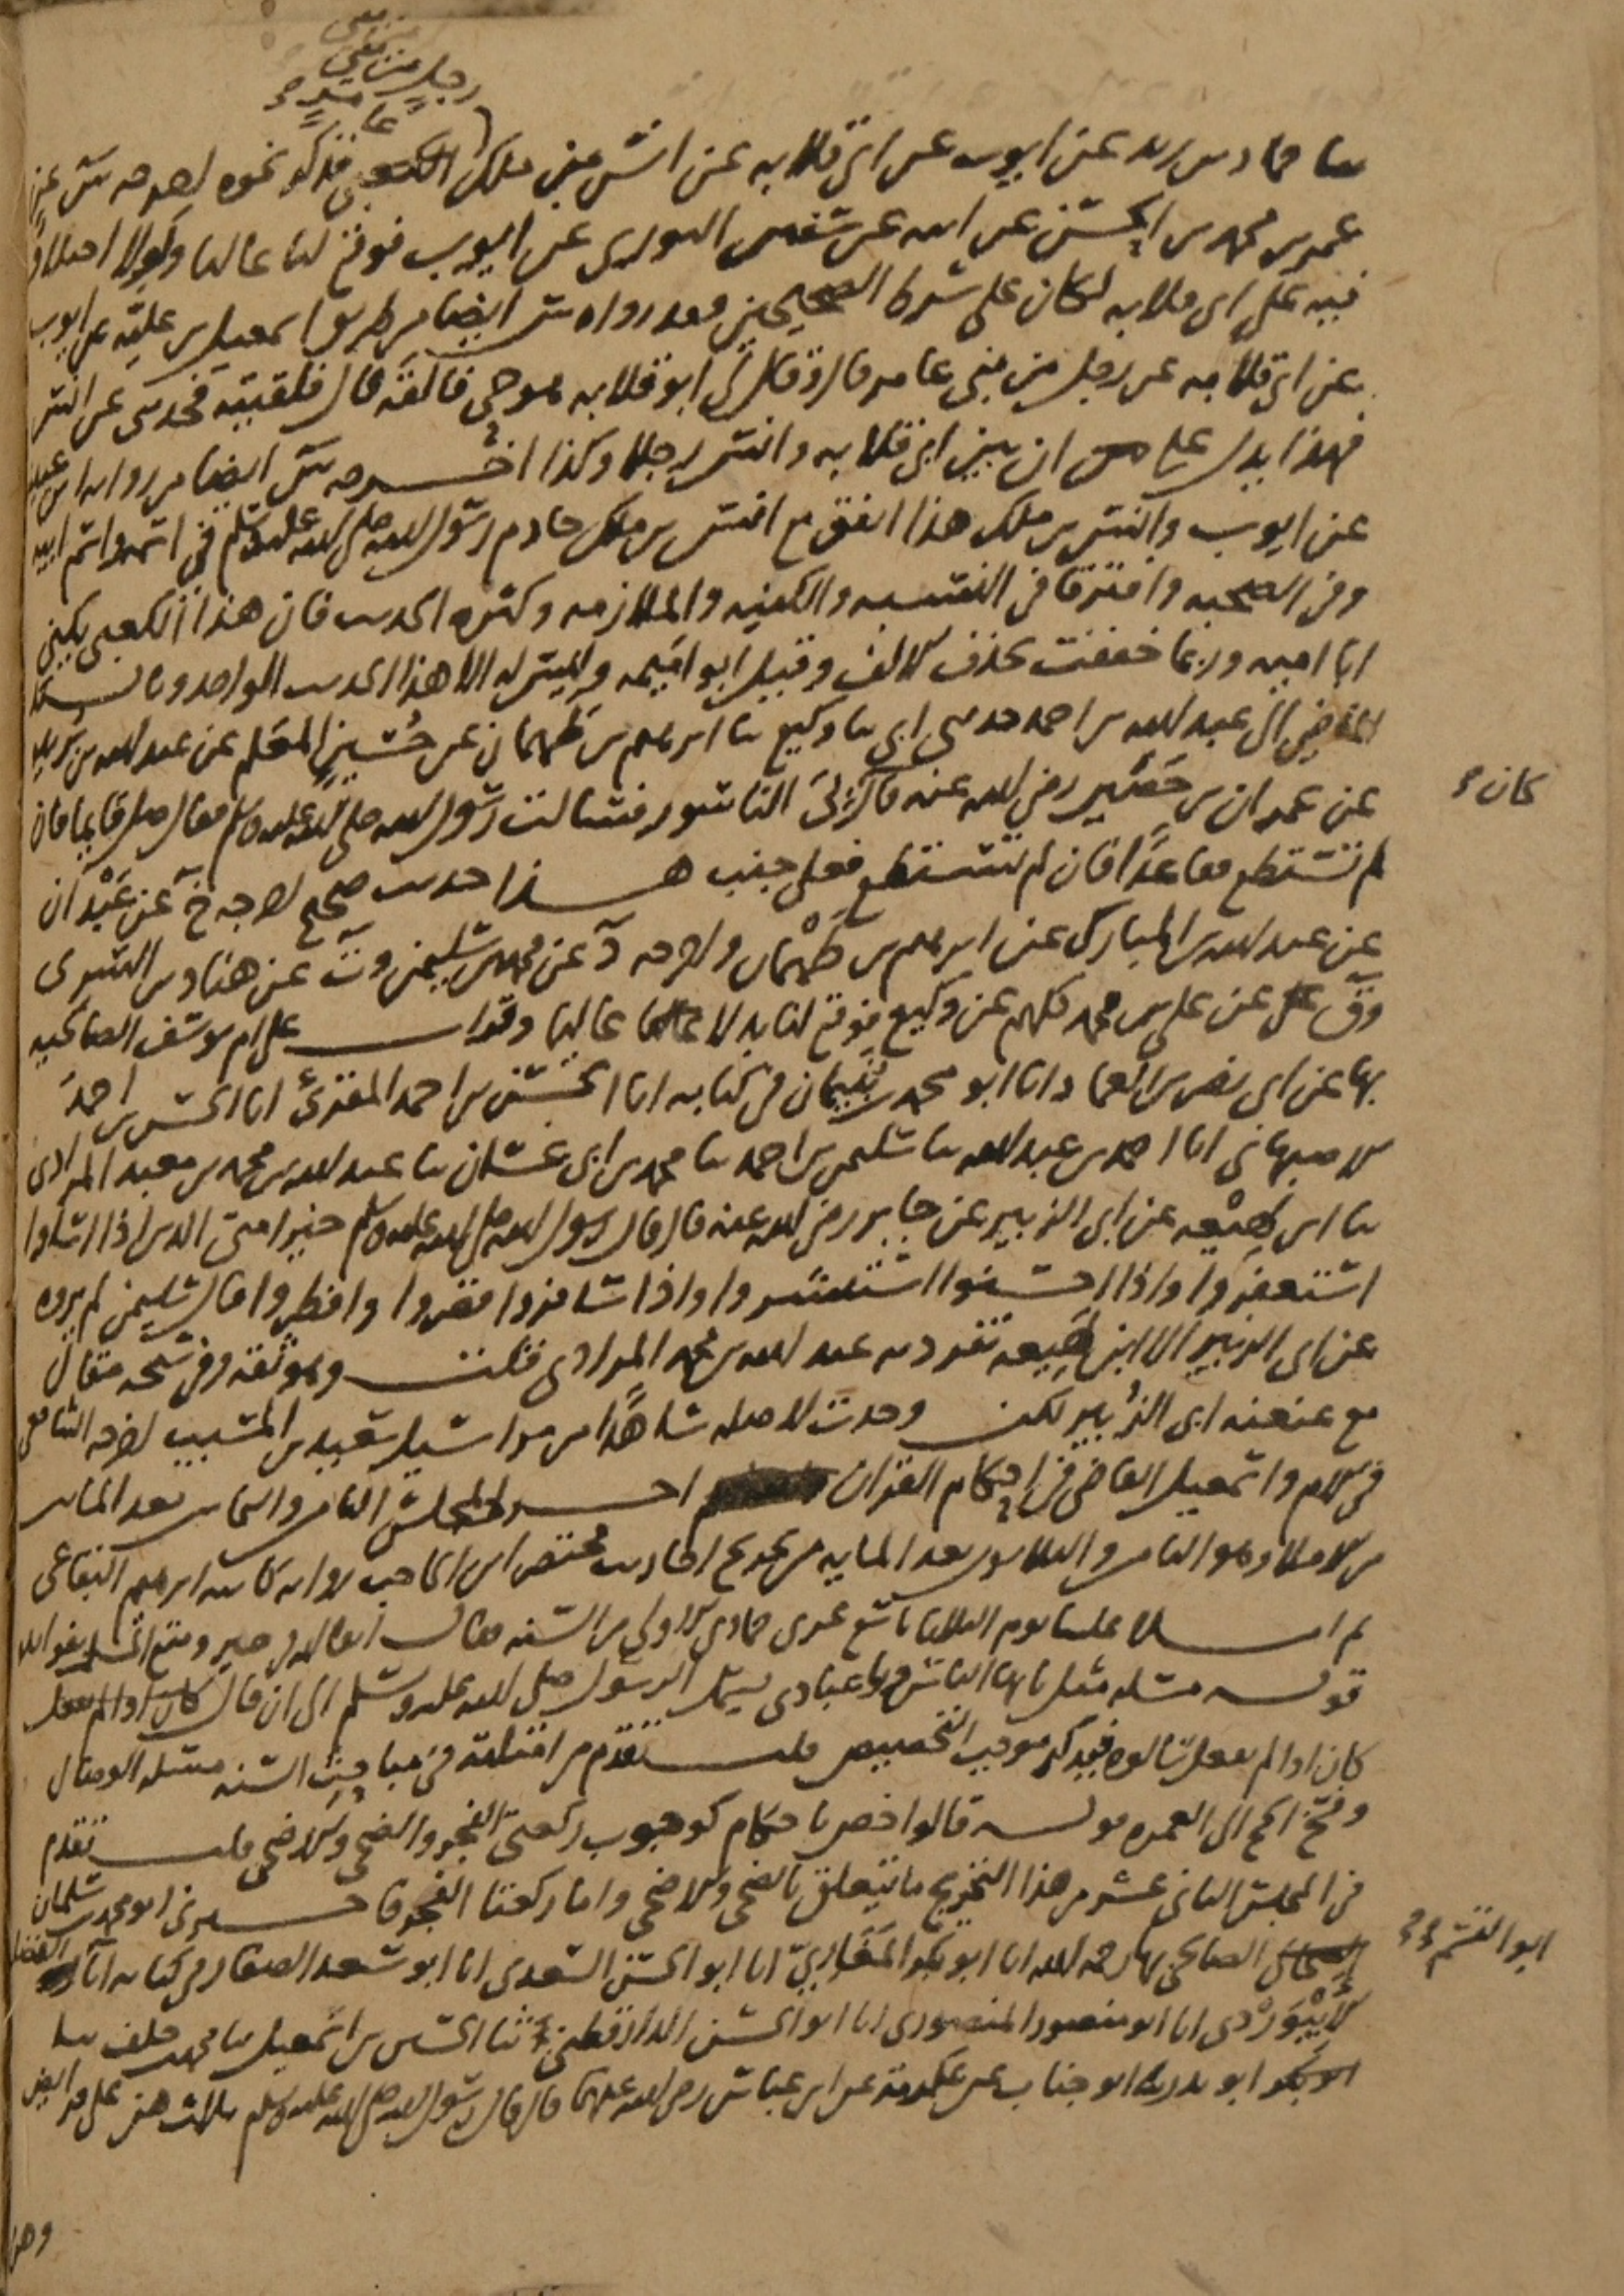 رجل من بني
عامر صح
ثنا حماد بن زيد عن ايوب عن ابي قلابة عن انس بن ملك الكعبي فذكر نحوه اخرجه س عن
عمر بن محمد بن الحسن عن ابيه عن سفين الثوري عن ايوب فوقع لنا عاليا ولولا اختلاف
فيه على ابي قلابة لكان على شرط الصحيحين فقد رواه س ايضا من طريق اسمعيل بن علية عن ايوب
عن ابي قلابة عن رجل من بني عامر قال وقال لي ابو قلابة هو حي فالقه قال فلقيته فحدثني عن انس
فهذا يدل على ان بين ابي قلابة وانس رجلا وكذا اخرجه س ايضا من رواية ابن عيينة
عن ايوب وانس بن ملك هذا اتفق مع انس بن ملك خادم رسول الله صلى الله عليه وسلم في اسمه واسم ابيه
وفي الصحبة وافترقا في النسبة والكنية والملازمة وكثرة الحديث فان هذا الكعبي يكنى
ابا امية وربما خففت بحذف الالف وقيل ابو اميمة وليس له الا هذا الحديث الواحد وبالسند
الماضي الى عبد الله بن احمد حدثني ابي ثنا وكيع ثنا ابرهيم بن طهمان عن حسين المعلم عن عبد الله بن بريدة
عن عمران بن حصين رضي الله عنه قال بي الناسور فسالت رسول الله صلى الله عليه وسلم فقال صل قايما فان
كان صح
لم تستطع فقاعدا فان لم تستطع فعلى جنب هذا حديث صحيح اخرجه خ عن عبدان
عن عبد الله بن المبارك عن ابرهيم بن طهمان واخرجه د عن محمد بن سليمن وت عن هناد بن السري
وق عن علي بن محمد كلهم عن وكيع فوقع لنا بدلا عاليا وقرات على ام يوسف الصالحية
بها عن ابي نصر بن العماد انا ابو محمد بن بنيمان في كتابه انا الحسن بن احمد المقرئ انا الحسن بن احمد
الاصبهاني انا احمد بن عبد الله ثنا سليمن بن احمد ثنا محمد بن ابي غسان ثنا عبد الله بن محمد بن معبد المرادي
ثنا ابن لهيعة عن ابي الزبير عن جابر رضي الله عنه قال قال رسول الله صلى الله عليه وسلم خير امتي الذين اذا اساوا
استغفروا واذا احسنوا استبشروا واذا سافروا قصروا وافطروا قال سليمن لم يروه
عن ابي الزبير الا ابن لهيعة تفرد به عبد الله بن محمد المرادي قلت وهو ثقة وفي شيخه مقال
مع عنعنة ابي الزبير لكن وجدت لاصله شاهدا من مراسيل سعيد بن المسيب اخرجه الشافعي
في الام واسمعيل القاضي في احكام القران اخر المجلس الثامن والثمانين بعد الماية
من الاملاء وهو الثامن والثلاثون بعد الماية من تخريج احاديث مختصر ابن الحاجب رواية كاتبه ابرهيم البقاعي
ثم املا علينا يوم الثلاثا تاسع عشري جمادى الاولى من السنة فقال
قوله مسلة مثل يا ايها الناس ويا عبادي يشمل الرسول صلى الله عليه وسلم الى ان قال
كان اذا لم يفعل سالوه فيذكر موجب التخصيص قلت تقدم من امثلته في مباحث السنة مسلة الوصال
وفسخ الحج الى العمرة قوله قالوا خص باحكام كوجوب ركعتي الفجر والضحى والاضحى قلت تقدم
في المجلس الثاني عشر من هذا التخريج ما يتعلق بالضحى والاضحى واما ركعتا الفجر فاخبرني ابو محمد بن سلمان
الصالحي بها رحمه الله انا ابو بكر المغاري انا ابو الحسن السعدي انا ابو سعد الصفار في كتابه انا
ابو القسم صح
الابيوردي انا ابو منصور المنصوري انا ابو الحسن الدارقطني ثنا الحسين بن اسمعيل ثنا محمد بن خلف ثنا
ابو بدر ثنا ابو جناب عن عكرمة عن ابن عباس رضي الله عنهما قال قال رسول الله صلى الله عليه وسلم ثلاث هن علي فرايض
وهن